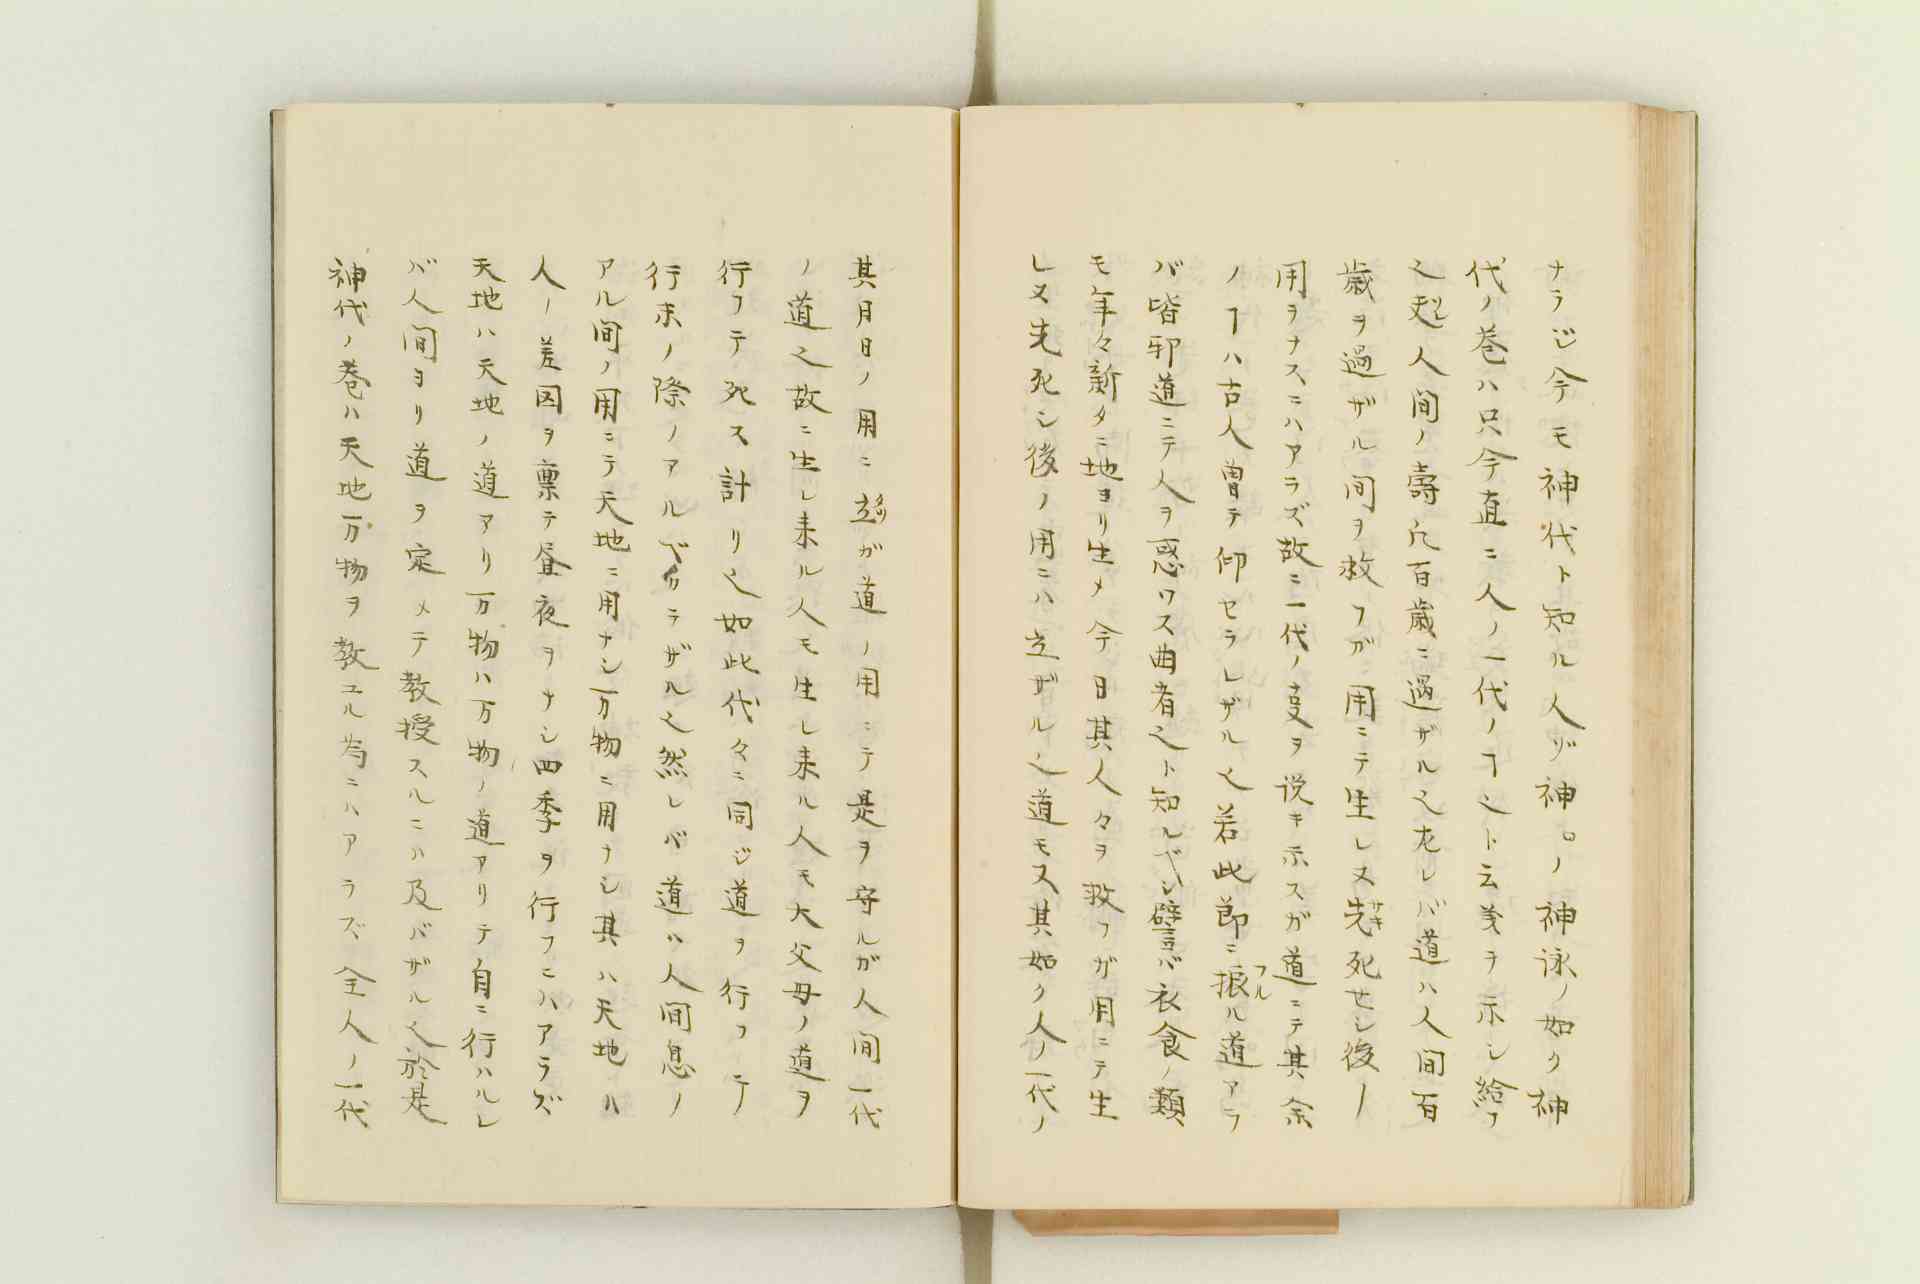 ナラジ今モ神代ト知ル人ゾ神ロノ神詠ノ如ク神
代ノ巻ハ只今直ニ人ノ一代ノヿ也ト云義ヲ示シ給フ
也 人間ノ壽凡百歳ニ過ザル也左レバ道ハ人間百
歳ヲ過ザル間ヲ救フガ用ニテ生レヌ先死セシ後ノ
用ヲナスニハアラズ故ニ一代ノ叓ヲ説キ示スガ道ニテ其余
ノヿハ古人曽テ仰セラレザル也若此節ニ振ル道アラ
バ皆邪道ニテ人ヲ惑ワス曲者也ト知ルベシ譬バ衣食ノ類
モ年々新タニ地ヨリ生メ今日其人々ヲ救フガ用ニテ生
レヌ先死シ後ノ用ニハ立ザル也道モ又其如ク人ノ一代ノ
其月日ノ用ニ立ガ道ノ用ニテ是ヲ守ルガ人間一代
ノ道也故ニ生レ来ル人モ生レ来ル人モ大父母ノ道ヲ
行フテ死ス計リ也如此代々ニ同ジ道ヲ行フテ
行末ノ際ノアルベカラザル也然レバ道ハ人間息ノ
アル間ノ用ニテ天地ニ用ナシ万物ニ用ナシ其ハ天地ハ
人ノ差図ヲ禀テ昼夜ヲナシ四季ヲ行フニハアラズ
天地ハ天地ノ道アリ万物ハ万物ノ道アリテ自ニ行ハルレ
バ人間ヨリ道ヲ定メテ教授スルニハ及バザル也於是
神代ノ巻ハ天地万物ヲ教ユル為ニハアラズ全人ノ一代